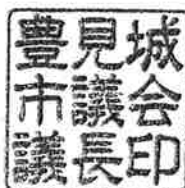 豊見城
市議会
議長印